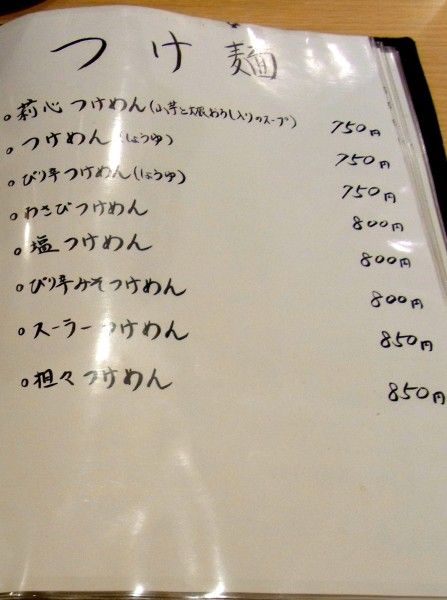 つけ麺
○莉心つけめん(山芋と大根おろし入りのスープ) 750円
○つけめん(しょうゆ) 750円
○ぴり辛つけめん(しょうゆ) 750円
○わさびつけめん 800円
○塩つけめん 800円
○ぴり辛みそつけめん 800円
○スーラーつけめん 850円
○担々つけめん 850円